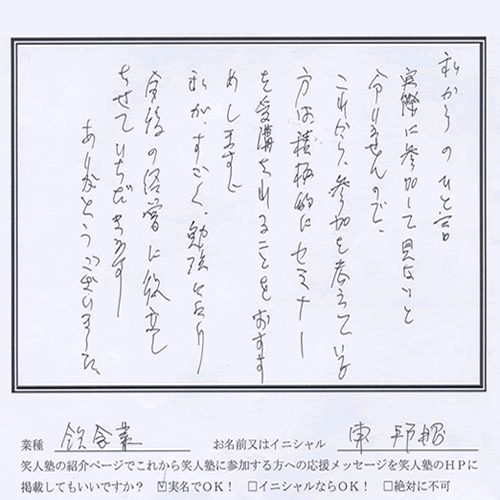 私からのひと言
実際に参加して見ないと
分りませんので、
これから、参加を考えている
方は、積極的にセミナー
を受講されることをおすす
めします。
私がすごく、勉強になり
今後の経営に役立し
させていただきます
ありがとうございました。
業種 飲食業 お名前又はイニシャル 東
笑人塾の紹介ページでこれから笑人塾に参加する方への応援メッセージを笑人塾のHPに
掲載してもいいですか? ☑実名でOK! □イニシャルならOK! □絶対に不可